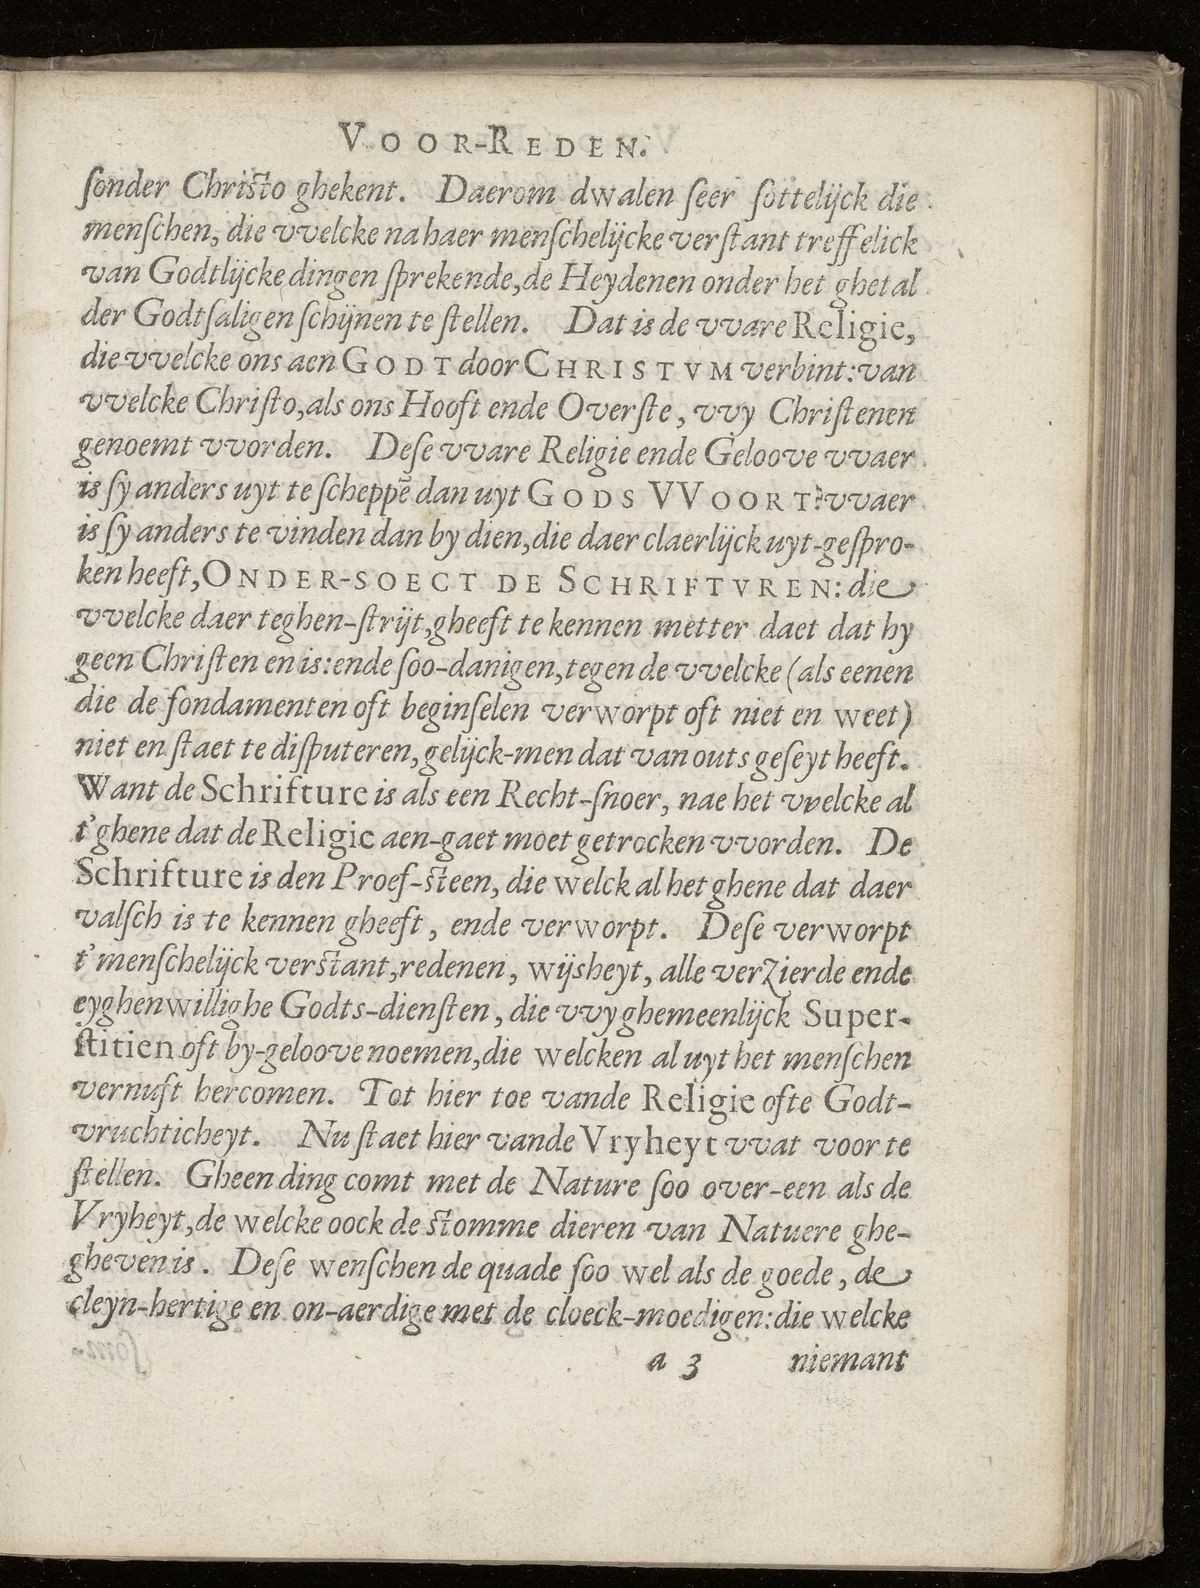 VOOR-REDEN.
ſonder Chriſto ghekent. Daerom dwalen ſeer ſottelijck die
menſchen, die vvelcke na haer menſchelijcke verſtant treffelick
van Godtlijcke dingen ſprekende, de Heydenen onder het ghetal
der Godtſaligen ſchijnen te ſtellen. Dat is de vvare Religie,
die vvelcke ons aen GODT door CHRISTVM verbint: van
vvelcke Chriſto, als ons Hooft ende Overſte, vvy Chriſtenen
genoemt vvorden. Deſe vvare Religie ende Geloove vvaer
is ſy anders uyt te ſcheppē dan uyt GODS VVOORT? vvaer
is ſy anders te vinden dan by dien, die daer claerlijck uyt-geſpro-
ken heeft, ONDER-SOECT DE SCHRIFTVREN: die
vvelcke daer teghen-ſtrijt, gheeft te kennen metter daet dat hy
geen Chriſten en is: ende ſoo-danigen, tegen de vvelcke (als eenen
die de fondamenten oft beginſelen verworpt oft niet en weet)
niet en ſtaet te diſputeren, gelijck-men dat van outs geſeyt heeft.
Want de Schrifture is als een Recht-ſnoer, nae het vvelcke al
t'ghene dat de Religie aen-gaet moet getrocken vvorden. De
Schrifture is den Proef-ſteen, die welck al het ghene dat daer
valſch is te kennen gheeft, ende verworpt. Deſe verworpt
t'menſchelijck verſtant, redenen, wijsheyt, alle verzierde ende
eyghenwillighe Godts-dienſten, die vvy ghemeenlijck Super-
ſtitien oft by-geloove noemen, die welcken al uyt het menſchen
vernuft hercomen. Tot hier toe vande Religie ofte Godt-
vruchticheyt. Nu ſtaet hier vande Vryheyt vvat voor te
ſtellen. Gheen ding comt met de Nature ſoo over-een als de
Vryheyt, de welcke oock de ſtomme dieren van Natuere ghe-
gheven is. Deſe wenſchen de quade ſoo wel als de goede, de
cleyn-hertige en on-aerdige met de cloeck-moedigen: die welcke
a 3 niemant